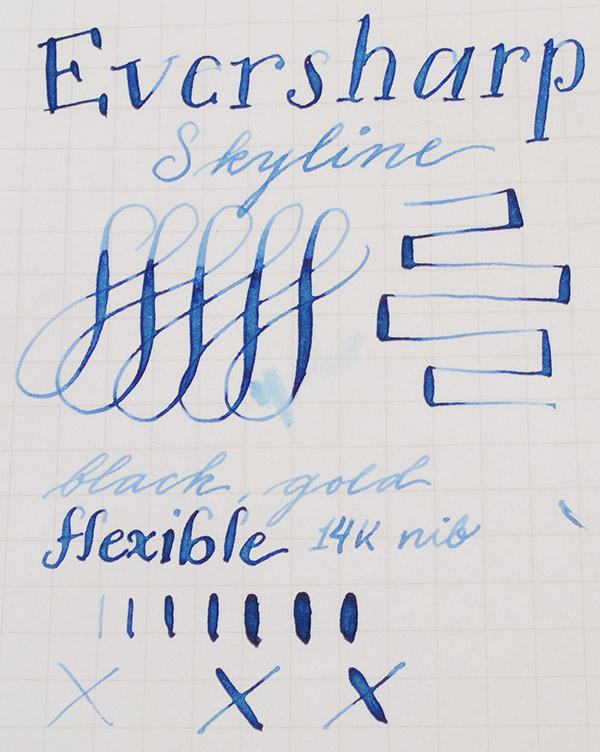 Eversharp
Skyline
black, gold
flexible 14K nib